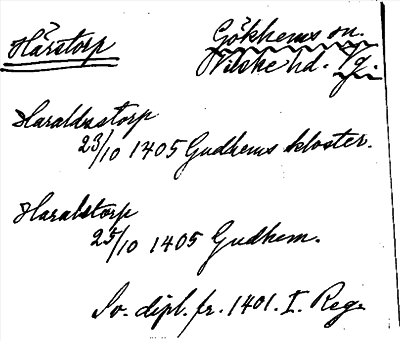 Härstorp
Gökhems sn.
Vilske hd. Vg.
Haraldastorp
23/10 1405 Gudhems kloster.
Haralstorp
25/10 1405 Gudhem.
Sv. dipl. fr. 1401. I. Reg.